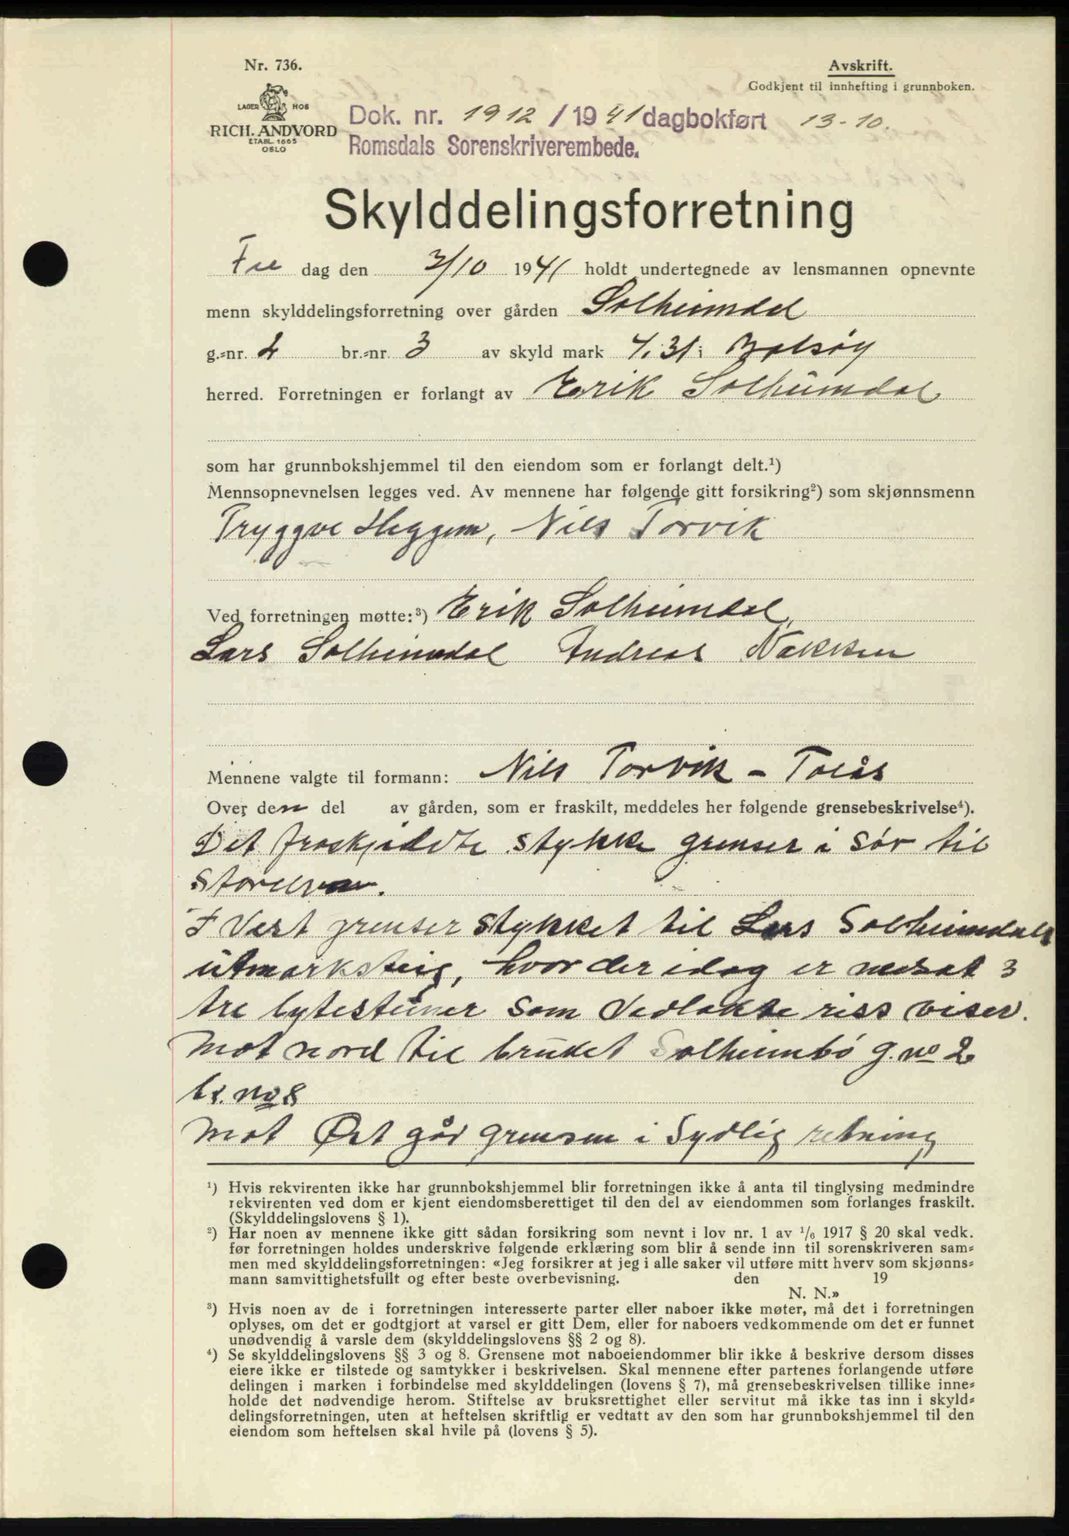 Nr. 736.
Avskrift.
Godkjent til innhefting i grunnboken.
LAGER HOS
RICH. ANDVORD
ETABL. 1865
OSLO
Dok. nr. 1912 / 1941 dagbokført 13-10.
Romsdals Sorenskriverembede.
Skylddelingsforretning
Fre dag den 3/10 1941 holdt undertegnede av lensmannen opnevnte
menn skylddelingsforretning over gården Solheimdal
g.=nr. 2 br.=nr. 3 av skyld mark 4.31 i Bolsøy
herred. Forretningen er forlangt av Erik Solheimdal
som har grunnbokshjemmel til den eiendom som er forlangt delt.¹)
Mennsopnevnelsen legges ved. Av mennene har følgende gitt forsikring²) som skjønnsmenn
Tryggve Heggem, Nils Torvik
Ved forretningen møtte:³) Erik Solheimdal,
Lars Solheimdal Andreas Nakken
Mennene valgte til formann: Nils Torvik - Toås
Over den del av gården, som er fraskilt, meddeles her følgende grensebeskrivelse⁴).
Det fraskjeldte stykke grenser i Sør til
Storelven.
I Vest grenser stykket til Lars Solheimdals
utmarksteig, hvor der idag er nedsat 3
tre bytesteiner som Vedlakte riss viser.
Mot nord til bruket Solheimbø g. no 2
br. no 8
Mot Øst går grensen i Sydlig retning
¹) Hvis rekvirenten ikke har grunnbokshjemmel blir forretningen ikke å anta til tinglysing medmindre
rekvirenten ved dom er kjent eiendomsberettiget til den del av eiendommen som forlanges fraskilt.
(Skylddelingslovens § 1).
²) Har noen av mennene ikke gitt sådan forsikring som nevnt i lov nr. 1 av 1/6 1917 § 20 skal vedk.
før forretningen holdes underskrive følgende erklæring som blir å sende inn til sorenskriveren sam=
men med skylddelingsforretningen: «Jeg forsikrer at jeg i alle saker vil utføre mitt hverv som skjønns=
mann samvittighetsfullt og efter beste overbevisning. den 19
N. N.»
³) Hvis noen av de i forretningen interesserte parter eller naboer ikke møter, må det i forretningen
oplyses, om det er godtgjort at varsel er gitt Dem, eller for naboers vedkommende om det er funnet
unødvendig å varsle dem (skylddelingslovens §§ 2 og 8).
⁴) Se skylddelingslovens §§ 3 og 8. Grensene mot naboeiendommer blir ikke å beskrive dersom disses
eiere ikke er tilstede og samtykker i beskrivelsen. Skal mennene efter partenes forlangende utføre
delingen i marken i forbindelse med skylddelingen (lovens § 7), må grensebeskrivelsen tillike inne=
holde det nødvendige herom. Stiftelse av bruksrettighet eller servitut må ikke tas inn i skyld=
delingsforretningen, uten at heftelsen skriftlig er vedtatt av den som har grunnbokshjemmel til den
eiendom som heftelsen skal hvile på (lovens § 5).